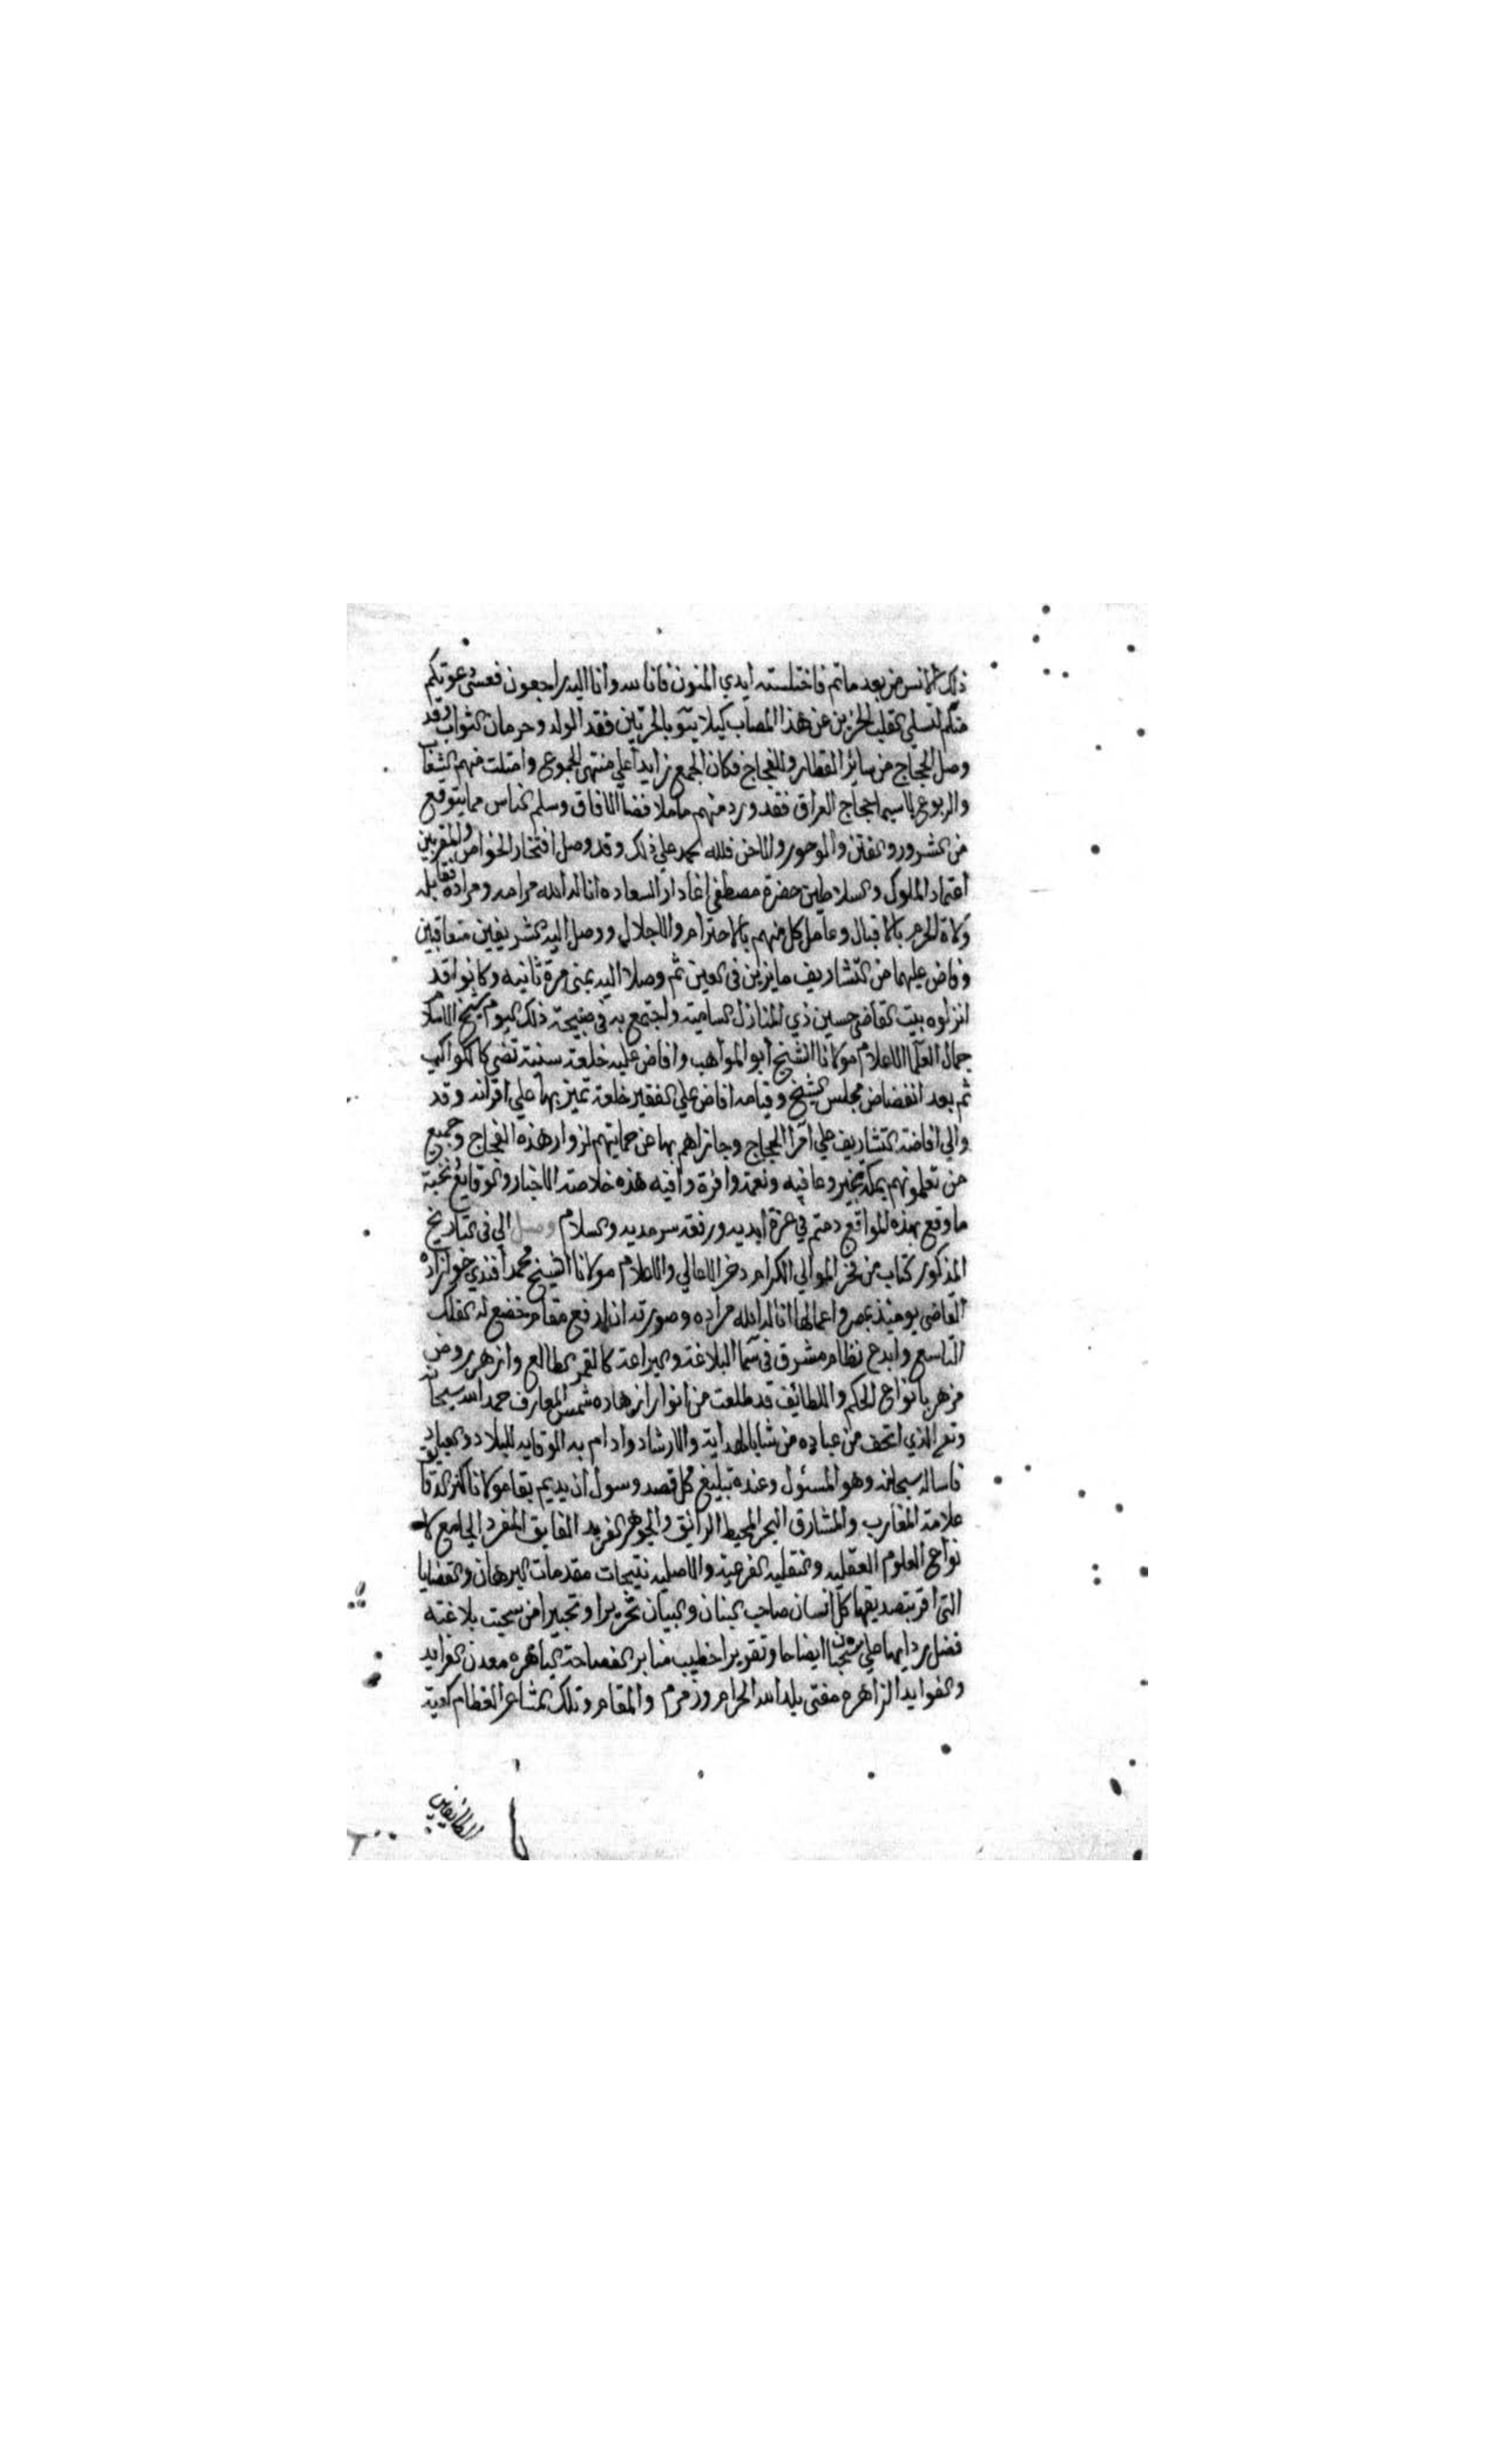 ذلك الانس من بعد ماتم فاختلسته ايدي المنون فانا لله وانا اليه راجعون فعسى دعوتكم
منكم لتسلي القلب الحزين عن هذا المصاب كيلا يتوب بالحرتين فقد الولد وحرمان الثواب وقد
وصل الحجاج من سائر الاقطار والفجاج فكان الجمع زايدا علي منتهى الجموع وامتلت منهم الشعاب
والربوع لا سيما حجاج العراق فقد ورد منهم ما ملا فضا الافاق وسلم الناس مما يتوقع
من الشرور والفتن والاحن فلله الحمد علي ذلك وقد وصل افتخار الخواص والمقربين
اعتماد الملوك والسلاطين حضرة مصطفى اغا دار السعاده اناله الله مرامه ومراده فقابله
ولاة الحرم بالاقبال وعامل كل منهم بالاحترام والاجلال ووصل اليه الشريفين متعاقبين
وفاض عليهما من التشاريف ما يزين في العين ثم وصلا اليه بمنى مرة ثانيه وكانوا قد
انزلوه بيت القاضي حسين ذي المنازل الساميه واجتمع به في صبيحة ذلك اليوم شيخ الاسلام
جمال العلما الاعلام مولانا الشيخ ابو المواهب وافاض عليه خلعة سنية تضي كالكواكب
ثم بعد انفضاض مجلس الشيخ وقيامه افاض علي الفقير خلعة تميز بها علي اقرانه وقد
والي افاضة التشاريف علي اقرا الحجاج وجازاهم بها عن حمايتهم لزوار هذه الفجاج وجميع
من تعلمونهم بمكة بخير وعافيه ونعمة وافرة وافيه هذه خلاصة الاخبار والوقايع نخبة
ما وقع بهذه المواقع دمتم في عزة ابديه ورفعه سرمديه والسلام وصل الي في التاريخ
المذكور كتاب من فخر الموالي الكرام ذخر الاعالي والاعلام مولانا الشيخ محمد افندي خواززاده
القاضي يوميذ بمصر واعمالها اناله الله مراده وصورته ان ارفع مقام خضع له الفلك
التاسع وابدع نظام مشرق في سما البلاغة والبراعة كالقمر الطالع وازهر روض
مزهر بانواع الحكم واللطائف قد طلعت من انوار ازهاره شمس المعارف حمد الله سبحانه
وتع الذي اتحف من عباده من شا بالهداية والارشاد وادام به الوقايه للبلاد والعباد
فاساله سبحانه وهو المسئول وعنده تبليغ كل قصد وسول ان يديم بقا مولانا كنز الدقايق
علامة المغارب والمشارق البحر المحيط الرائق والجوهر الفريد الفايق المفرد الجامع لا
نواع العلوم العقليه والنقليه الفرعية والاصليه نتيجات مقدمات البرهان والقضايا
التي اقر بتصديقها كل انسان صاحب البنان والبيان تحريرا وتحبيرا من سحبت بلاغته
فضل ردايها علي سحبان ايضاحا وتقريرا خطيب منابر الفصاحة الباهره معدن الفرايد
والفوايد الزاهره مفتي بلد الله الحرام وزمزم والمقام وتلك المشاعر العظام كعبة
الطائفين